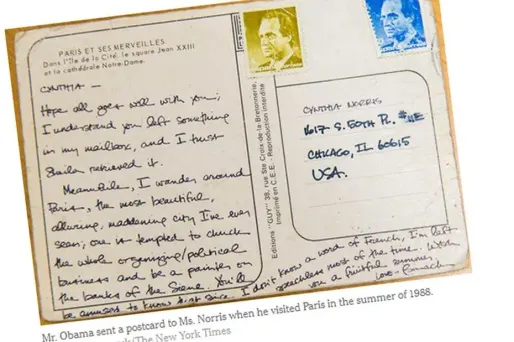 PARIS ET SES MERVEILLES
Dans l'Ile de la Cité, le square Jean XXIII
et la cathédrale Notre-Dame.
CYNTHIA —
Hope all goes well with you;
I understand you left something
in my mailbox, and I trust
retrieved it.
Meanwhile, I wander around
Paris, the most beautiful,
alluring, maddening city I've ever
seen; one is tempted to chuck
the whole organizing/political
business and be a painter on
the banks of the Seine. You'll
be amused to know that since I don't know a word of French, I'm left
speechless most of the time. Wish
you a fruitful summer,
Love - Barack
Editions "GUY" 38, rue Ste Croix-de-la-Bretonnerie,
Imprimé en C.E.E. - Reproduction interdite
CYNTHIA NORRIS
1617 S. 50TH PL. #4E
CHICAGO, IL 60615
USA.
Mr. Obama sent a postcard to Ms. Norris when he visited Paris in the summer of 1988.
/The New York Times